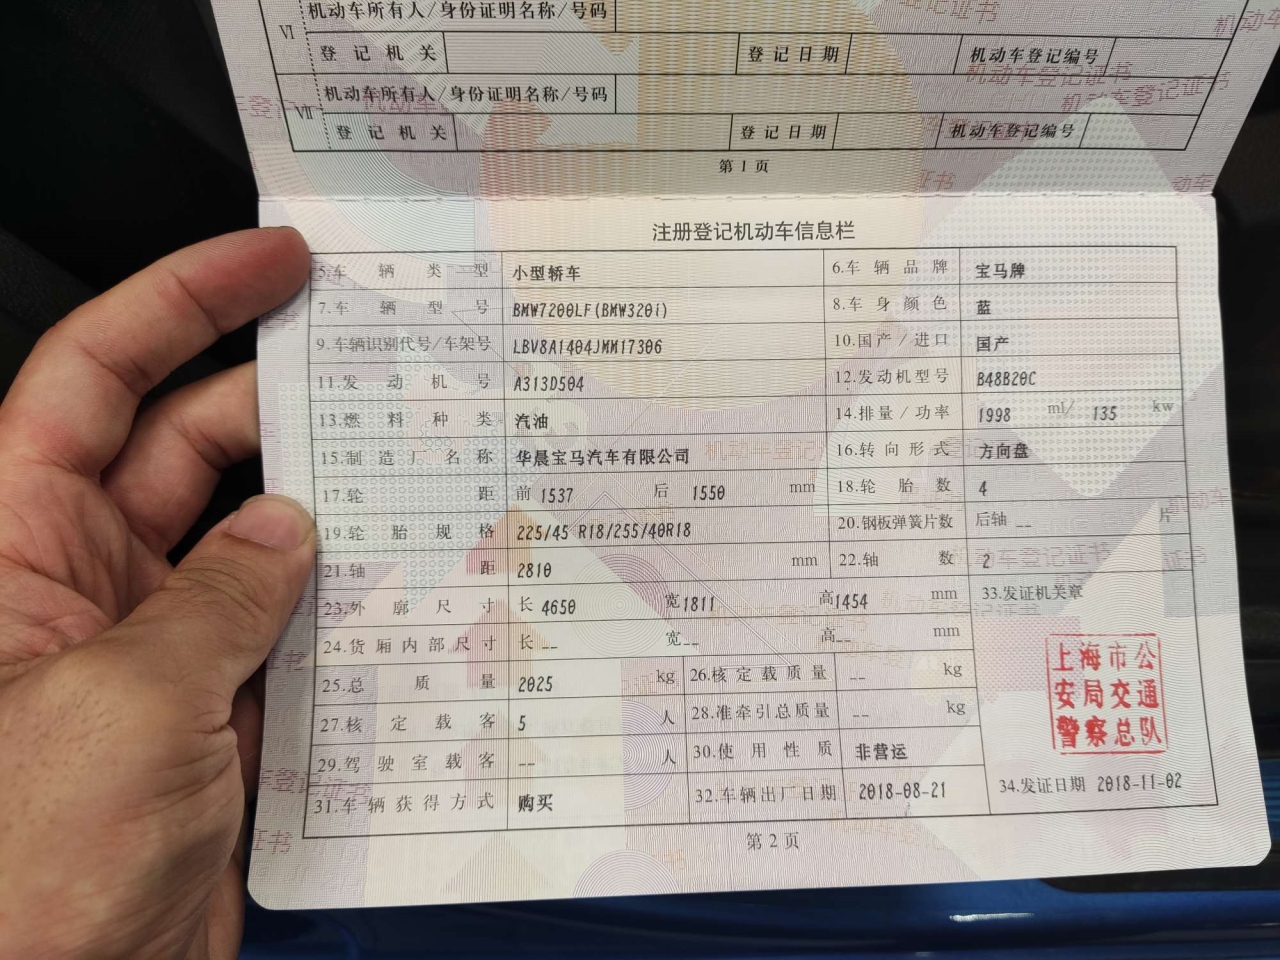 VI 机动车所有人/身份证明名称/号码
登记机关 登记日期 机动车登记编号
VII 机动车所有人/身份证明名称/号码
登记机关 登记日期 机动车登记编号
第1页
注册登记机动车信息栏
5.车辆类型 小型轿车 6.车辆品牌 宝马牌
7.车辆型号 BMW7200LF(BMW320i) 8.车身颜色 蓝
9.车辆识别代号/车架号 LBV8A1404JMM17306 10.国产/进口 国产
11.发动机号 A313D504 12.发动机型号 B48B20C
13.燃料种类 汽油 14.排量/功率 1998 ml/ 135 kw
15.制造厂名称 华晨宝马汽车有限公司 16.转向形式 方向盘
17.轮距 前 1537 后 1550 mm 18.轮胎数 4
19.轮胎规格 225/45 R18/255/40R18 20.钢板弹簧片数 后轴 -- 片
21.轴距 2810 mm 22.轴数 2
23.外廓尺寸 长 4650 宽 1811 高 1454 mm 33.发证机关章
24.货厢内部尺寸 长 -- 宽 -- 高 -- mm
25.总质量 2025 kg 26.核定载质量 -- kg
27.核定载客 5 人 28.准牵引总质量 -- kg
29.驾驶室载客 -- 人 30.使用性质 非营运
31.车辆获得方式 购买 32.车辆出厂日期 2018-08-21 34.发证日期 2018-11-02
上海市公
安局交通
警察总队
第2页